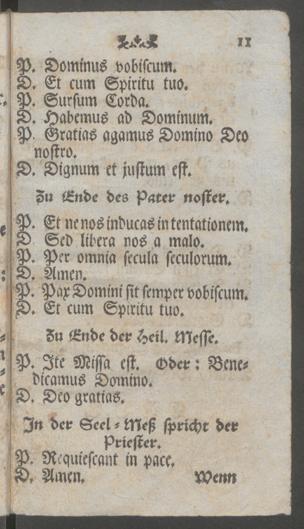 11
P. Dominus vobiscum.
D. Et cum Spiritu tuo.
P. Sursum Corda.
D. Habemus ad Dominum.
P. Gratias agamus Domino Deo
nostro.
D. Dignum et justum est.
Zu Ende des Pater noster.
P. Et ne nos inducas in tentationem.
D. Sed libera nos a malo.
P. Per omnia secula seculorum.
D. Amen.
P. Pax Domini sit semper vobiscum.
D. Et cum Spiritu tuo.
Zu Ende der Heil. Messe.
P. Ite Missa est. Oder: Bene-
dicamus Domino.
D. Deo gratias.
In der Seel-Meß spricht der
Priester.
P. Requiescant in pace.
D. Amen. Wenn